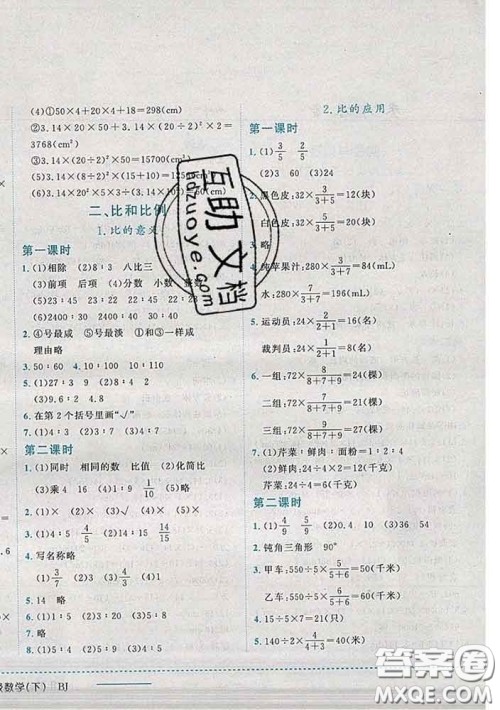 (4)①50×4+20×4=298(cm)
②3.14×20×50+3.14×(20÷2)
③3.14×(20÷2)²×50=15700(cm³)
3.14×(20÷2)²
二、比和比例
1.比的意义
第一课时
1.(1)相除 (2)8∶3 八比三
(3)前项 后项 (4)分数 小数 整数
2.④号最咸 ⑤号最淡 ①和③一样咸
理由略
5.(1)27∶3 (2)9∶2
6.在第2个括号里画“√”
7.(1)4∶5 (2)4∶1 (3)3∶7
第二课时
1.(1)同时 相同的数 比值 (2)化简比
(3)乘 4 16 10 1/10 (4)略
2.略
3.(1)4∶5 4/5 (2)14∶15 14/15
4.写名称略
(1)1∶3 (2)3∶4 (3)2∶3
5.14 略
6.(1)1∶5 (2)1∶5 (3)1∶5
7.略
8.(1)2∶3 (2)4∶3 (3)1∶7
2.比的应用
第一课时
1.(1)3/5 2/5
2.黑色皮:32×3/(3+5)=12(块)
白色皮:32×5/(3+5)=20(块)
3.略
4.纯苹果汁:280×3/(3+7)=84(mL)
水:280×7/(3+7)=196(mL)
5.运动员:24×2/(2+1)=16(名)
裁判员:24×1/(2+1)=8(名)
6.一组:72×8/(8+7+9)=24(棵)
二组:72×7/(8+7+9)=21(棵)
三组:72×9/(8+7+9)=27(棵)
7.(1)芹菜∶鲜肉∶面粉=1∶2∶4
(2)鲜肉:24÷4×2=12(千克)
芹菜:24÷4=6(千克)
第二课时
1.(1)4/9 5/9 (2)0.4 10 (3)36 54
2.钝角三角形 90°
3.甲车:550÷5×6/(5+6)=60(千米)
乙车:550÷5×5/(5+6)=50(千米)
4.15÷5×7=21(只)
5.140÷2×4/(3+4)=40(米)
数学(下) BJ
互助文档
Hdzuoye.com
答案圈
MXQE.COM